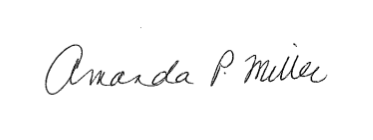 Amanda P. Miller